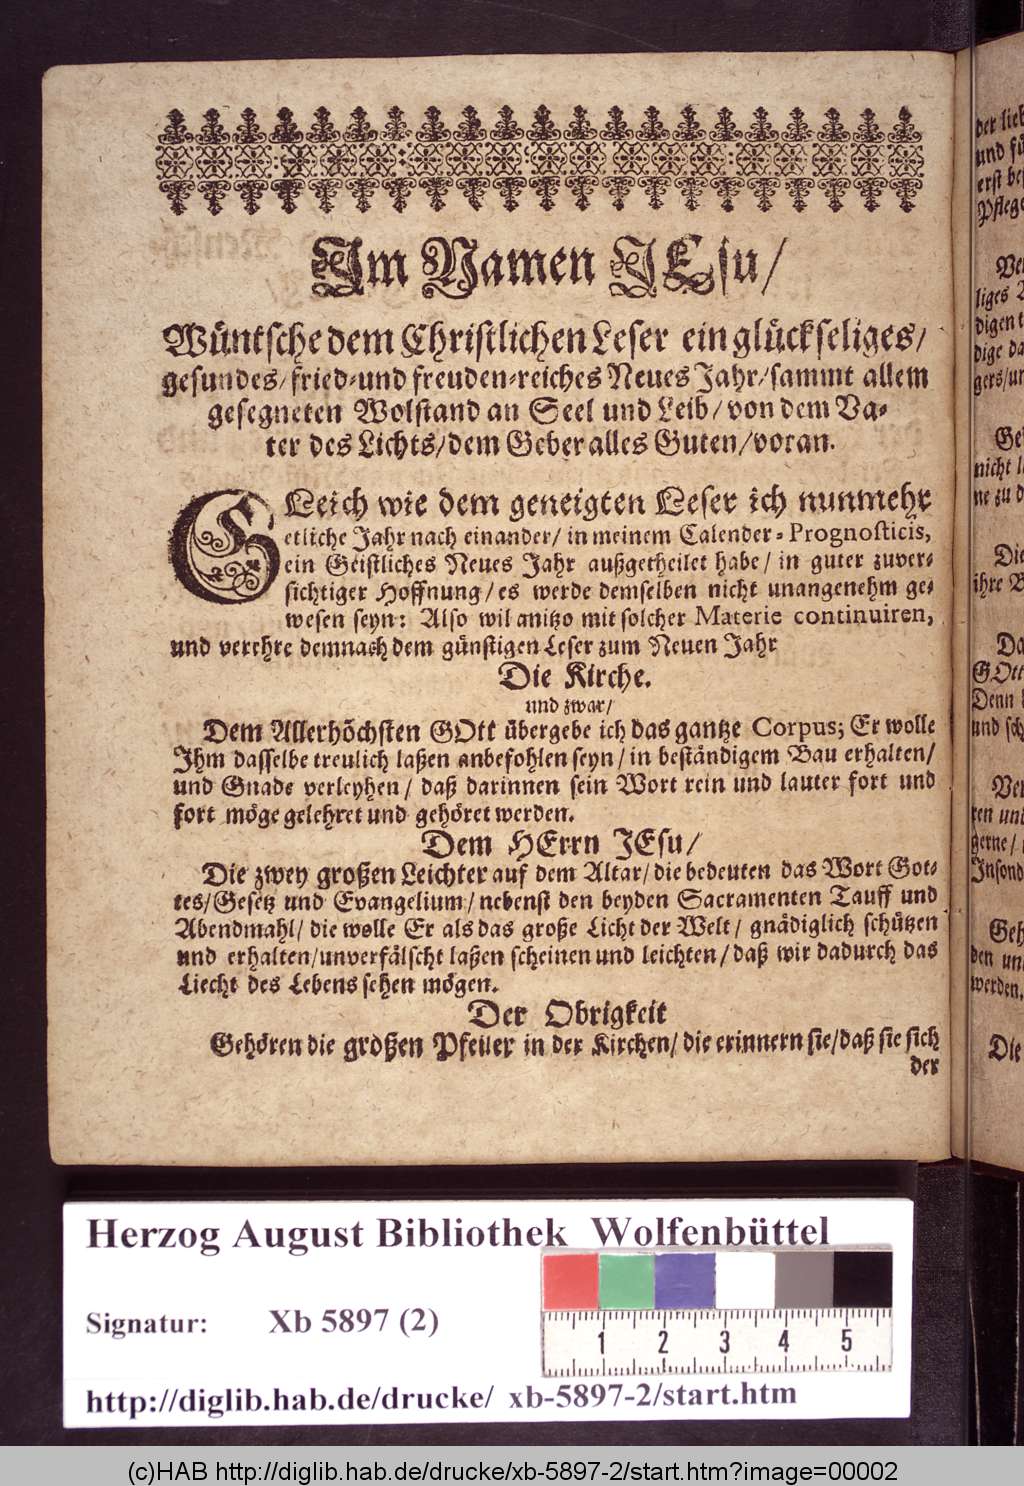 Im Namen JEsu/
Wüntsche dem Christlichen Leser ein glückseliges/
gesundes/ fried- und freuden-reiches Neues Jahr/ sammt allem
gesegneten Wolstand an Seel und Leib/ von dem Va-
ter des Lichts/ dem Geber alles Guten/ voran.
GLeich wie dem geneigten Leser ich nunmehr
etliche Jahr nach einander/ in meinem Calender-Prognosticis,
ein Geistliches Neues Jahr außgetheilet habe/ in guter zuver-
sichtiger Hoffnung/ es werde demselben nicht unangenehm ge-
wesen seyn: Also wil anitzo mit solcher Materie continuiren,
und verehre demnach dem günstigen Leser zum Neuen Jahr
Die Kirche.
und zwar/
Dem Allerhöchsten GOtt übergebe ich das gantze Corpus; Er wolle
Ihm dasselbe treulich laßen anbefohlen seyn/ in beständigem Bau erhalten/
und Gnade verleyhen/ daß darinnen sein Wort rein und lauter fort und
fort möge gelehret und gehöret werden.
Dem HErrn JEsu/
Die zwey großen Leichter auf dem Altar/ die bedeuten das Wort Got-
tes/ Gesetz und Evangelium/ nebenst den beyden Sacramenten Tauff und
Abendmahl/ die wolle Er als das große Licht der Welt/ gnädiglich schützen
und erhalten/ unverfälscht laßen scheinen und leichten/ daß wir dadurch das
Liecht des Lebens sehen mögen.
Der Obrigkeit
Gehören die großen Pfeiler in der Kirchen/ die erinnern sie/ daß sie sich
der
und
erst
nicht
Die
ihre
GOtt
Denn
und
gerne/
werden.
Die
Herzog August Bibliothek Wolfenbüttel
Signatur: Xb 5897 (2)
1 2 3 4 5
http://diglib.hab.de/drucke/ xb-5897-2/start.htm
(c)HAB http://diglib.hab.de/drucke/xb-5897-2/start.htm?image=00002